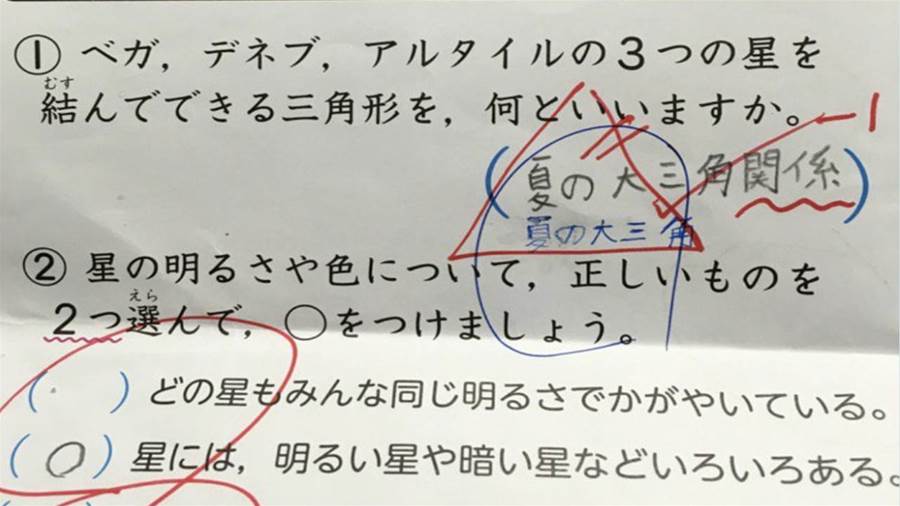 ① ベガ，デネブ，アルタイルの3つの星を
結んでできる三角形を，何といいますか。
むす
1
(夏の大三角関係)
夏の大三角
② 星の明るさや色について，正しいものを
2つ選んで，○をつけましょう。
えら
( )どの星もみんな同じ明るさでかがやいている。
(○)星には，明るい星や暗い星などいろいろある。